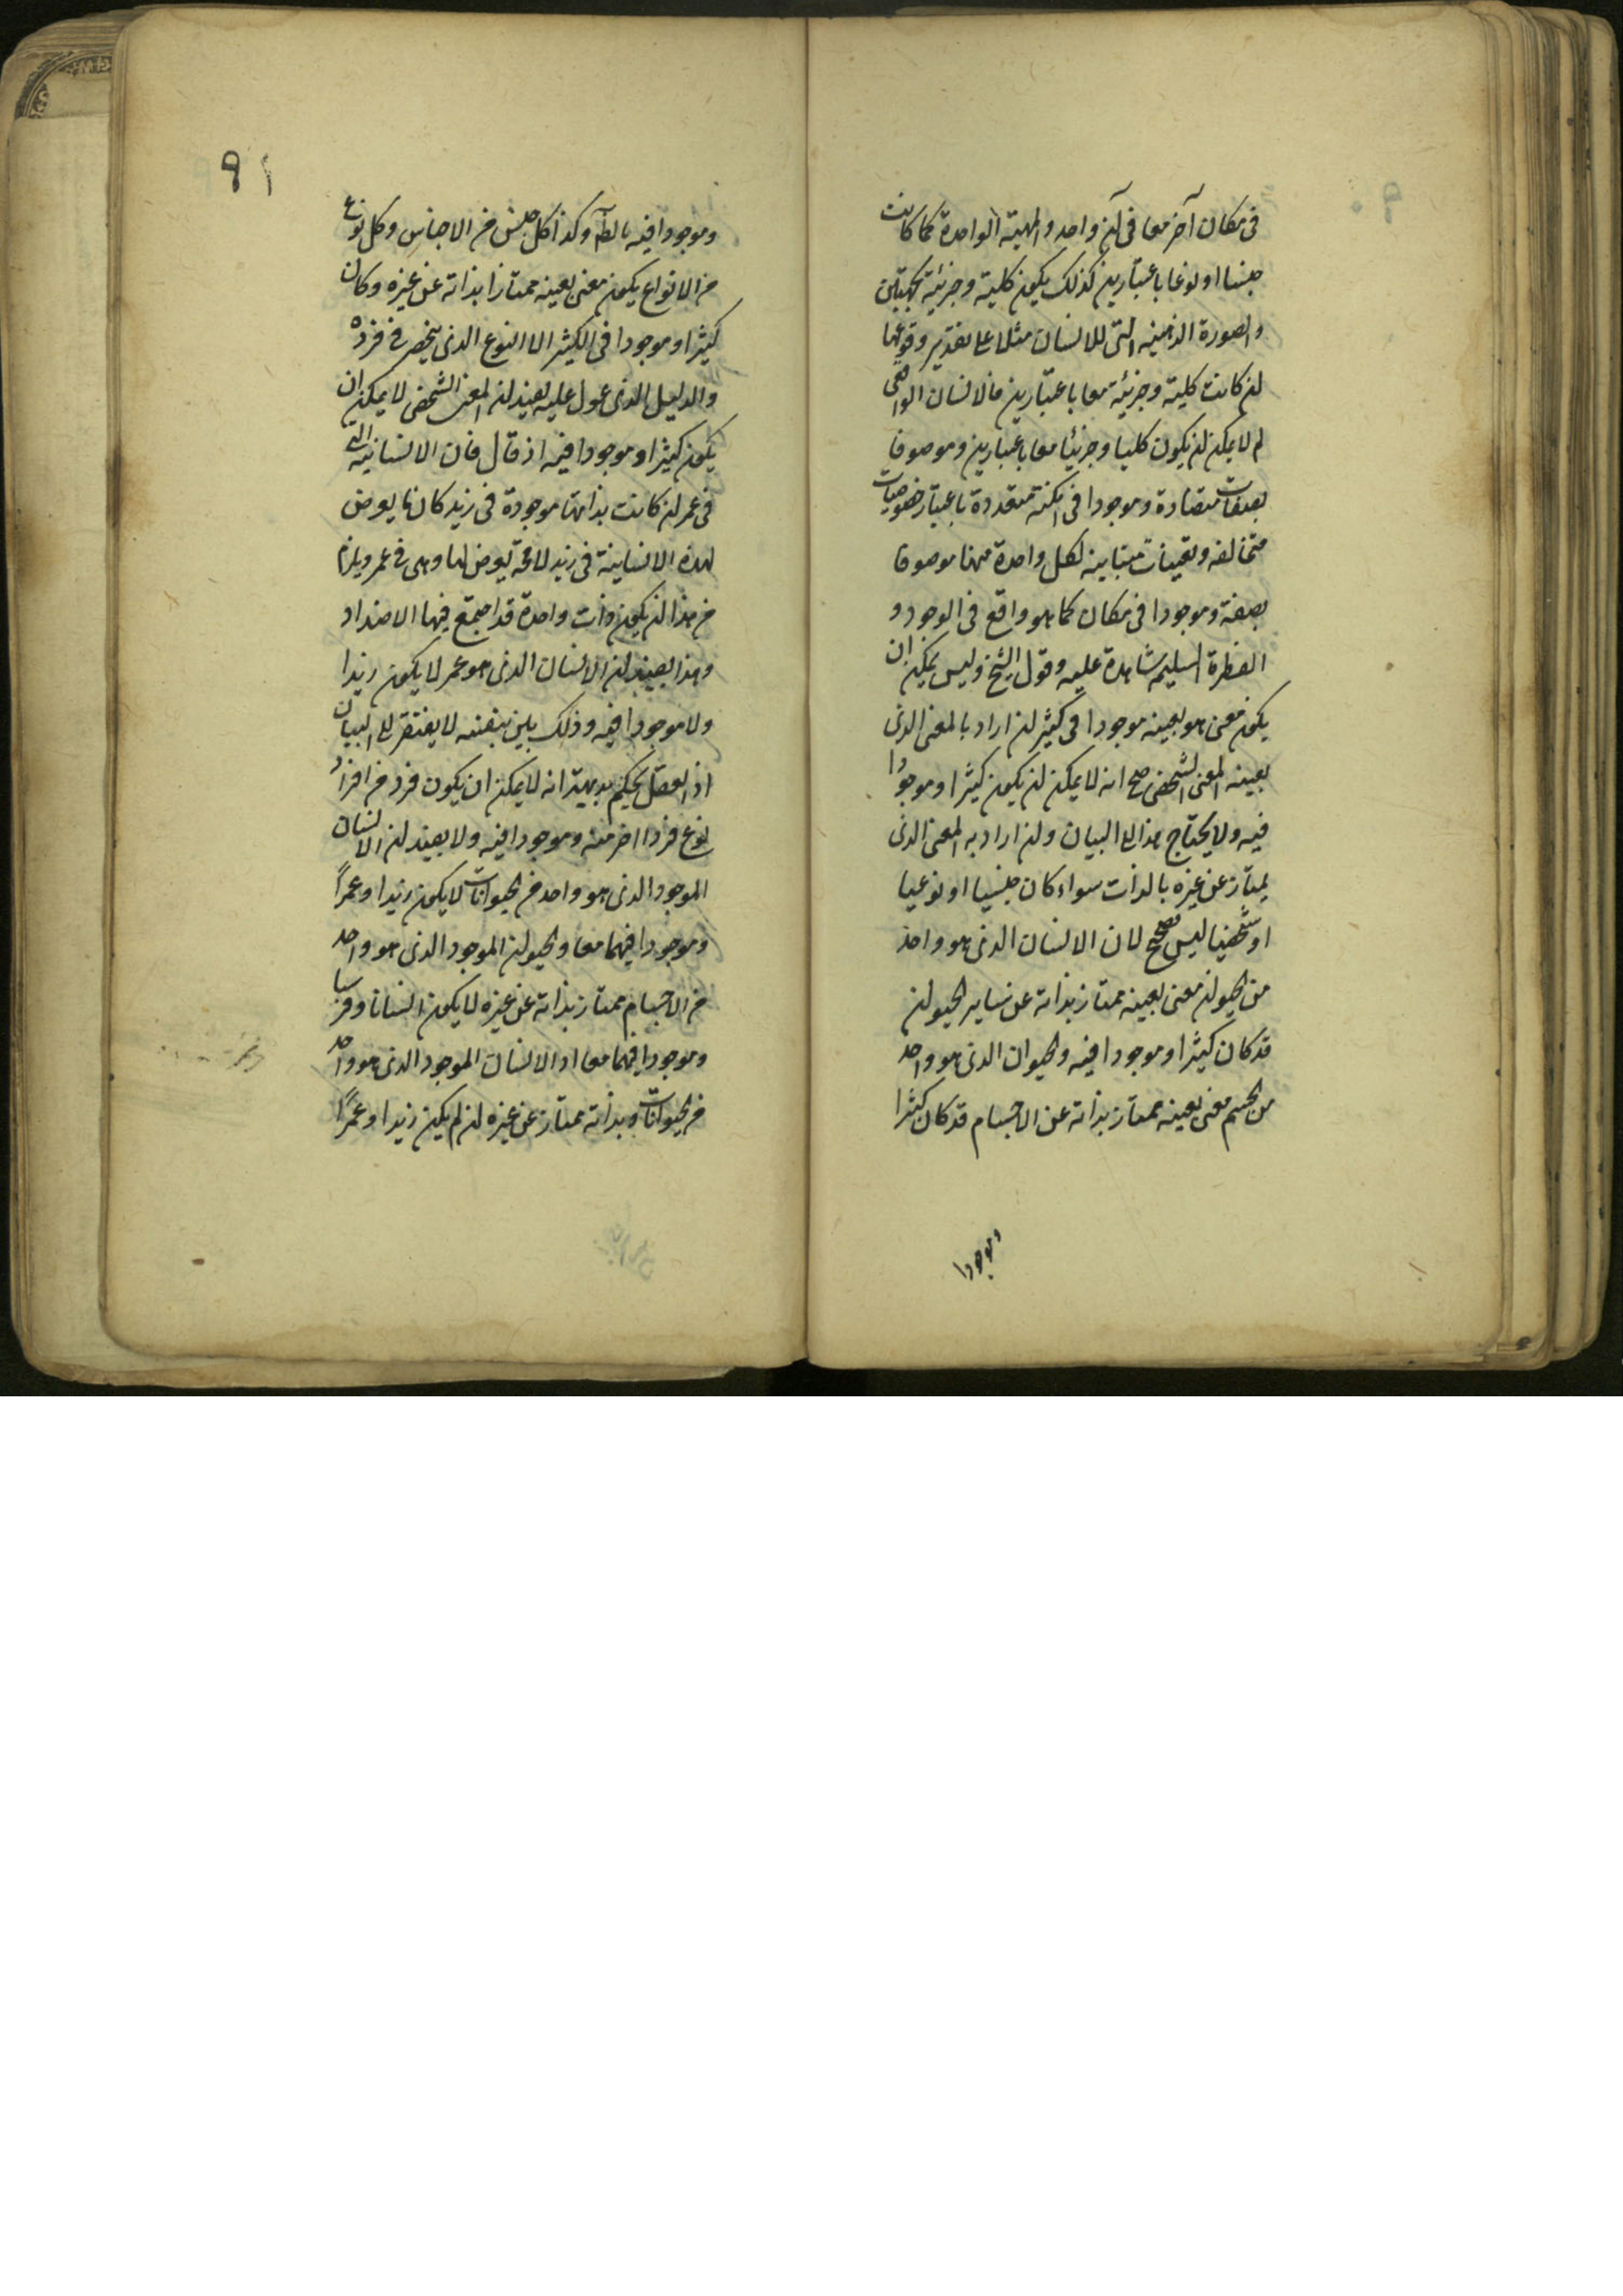 فى مكان آخر معا فى آن واحد والمهية الواحدة كما كانت
جنسا او نوعا باعتبارين كذلك يكون كلية وجزئية بجهتين
والصورة الذهنية التى للانسان مثلا على تقدير وقوعها
ان كانت كلية وجزئية معا باعتبارين فالانسان
لم لا يمكن ان يكون كليا وجزئيا معا باعتبارين وموصوفا
بصفات متضادة وموجودا فى امكنة متعددة باعتبار خصوصيات
متخالفه وتعينات متباينه لكل واحدة منها موصوفا
بصفة وموجودا فى مكان كما هو واقع فى الوجود و
الفطرة السليمه شاهدة عليه وقول الشيخ وليس يمكن ان
يكون معنى هو بعينه موجودا فى كثير ان اراد بالمعنى الذى
بعينه المعنى الشخصى صح انه لا يمكن ان يكون كثيرا وموجودا
فيه ولا يحتاج هذا الى البيان وان اراد به المعنى الذى
يمتاز عن غيره بالذات سواء كان جنسيا او نوعيا
او شخصيا ليس بصحيح لان الانسان الذى هو واحد
من الحيوان معنى بعينه ممتاز بذاته عن ساير الحيوان
قد كان كثيرا وموجودا فيه والحيوان الذى هو واحد
من الجسم معنى بعينه ممتاز بذاته عن الاجسام قد كان كثيرا
وموجودا
٩١
وموجودا فيه بالظم وكذا كل جنس من الاجناس وكل نوع
من الانواع يكون معنى بعينه ممتازا بذاته عن غيره وكان
كثيرا وموجودا فى الكثير الا النوع الذى ينحصر فى فرده
والدليل الذى عول عليه يفيد ان المعنى الشخصى لا يمكن ان
يكون كثيرا وموجودا فيه اذ قال فان الانسانيه التى
فى عمر ان كانت بذاتها موجودة فى زيد كان ما يعرض
لهذه الانسانية فى زيد لا محة يعرض لها وهى فى عمر ويلزم
من هذا ان يكون ذات واحدة قد اجتمع فيها الاضداد
وهذا يفيد ان الانسان الذى هو عمر لا يكون زيدا
ولا موجودا فيه وذلك بين بنفسه لا يفتقر الى البيان
اذ العقل يحكم بديهة انه لا يمكن ان يكون فرد من افراد
نوع فردا اخر منه وموجودا فيه ولا يفيد ان الانسان
الموجود الذى هو واحد من الحيوانات لا يكون زيدا وعمرًا
وموجودا فيهما معا والحيوان الموجود الذى هو واحد
من الاجسام ممتاز بذاته عن غيره لا يكون انسانا وفرسا
وموجودا فيهما معا اذ الانسان الموجود الذى هو واحد
من الحيوانات وبذاته ممتاز عن غيره ان لم يكن زيدا وعمرًا